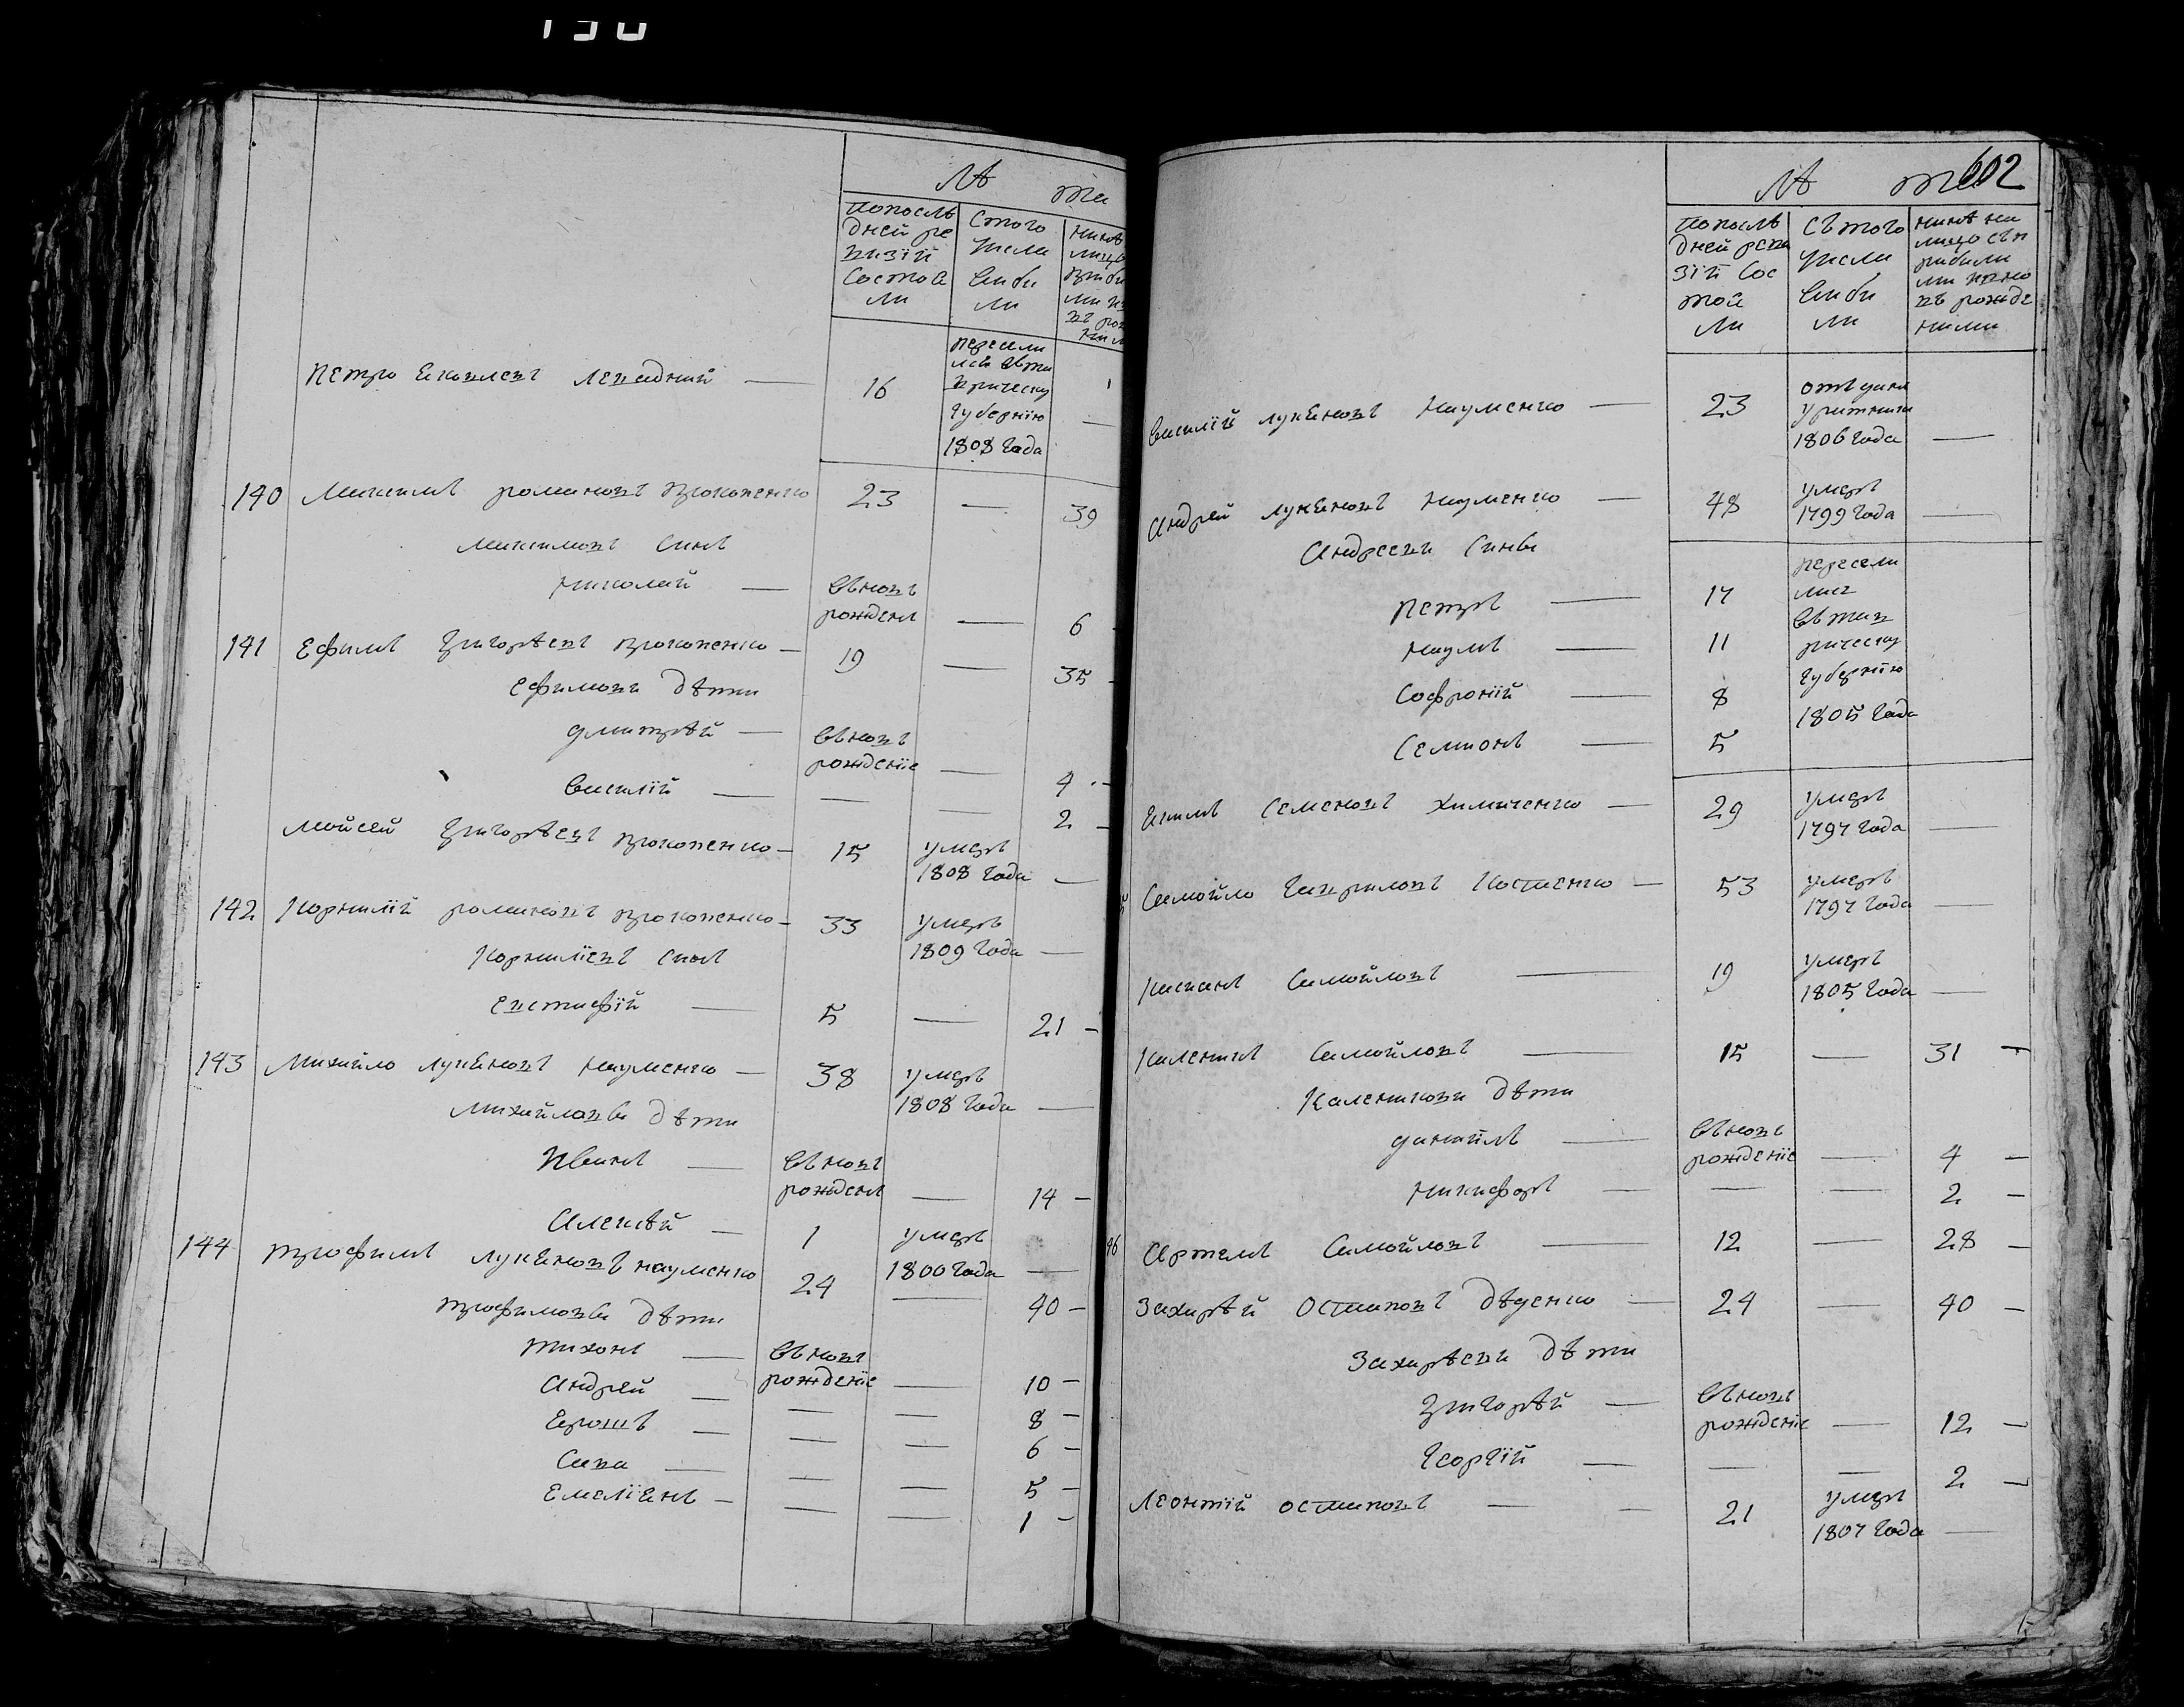 Лѣ та
попослѣ
дней ре
визіи
состоя
ли
Стого
числа
выбы
ли
Петро Яковлевъ Левадний — 16
пересели
лся въта
врическу
губернію
1808 года
140 Максимъ романовъ прокопенко 23 — 39
Максимовъ Синъ
Николай — вьновъ
рожденъ — 6
141 Ефимъ григорѣевъ прокопенко — 19 — 35
Ефимови дѣти
дмитрѣй — вьновъ
рожденіе — 4
Василій — — — 2
Мойсей григорѣевъ прокопенко — 15 умеръ
1808 года —
142 Корнилій романовъ прокопенко — 33 умеръ
1809 года —
Корниліевъ Синъ
Евстафій — 5 — 21
143 Михайло лукяновъ Науменко — 38 умеръ
1808 года —
Михайловы дѣти
Иванъ — вьновъ
рожденъ — 14
Алексѣй — 1 умеръ
1800 года —
144 трофимъ лукяновъ науменко 24 — 40
трофимовы дѣти
тихонъ — вьновъ
рожденіе — 10
Андрей — — — 8
Ярошъ — — — 6
Сава — — — 5
Емеліянъ — — — 1
602
Лѣ та
попослѣ
дней реви
зіи сос
тоя
ли
Съ того
числа
выбы
ли
нинѣ на
лицо съп
рибили
ми ино
въ рожде
ними
Василій лукяновъ Науменко — 23
1806 года —
Андрей лукяновъ Науменко — 48 умеръ
1799 года —
Андрееви Сины
Петръ — 14
Наумъ — 11
Софроній — 8
Семионъ — 5
пересели
лись
въ тав
рическу
губернію
1805 года
Якимъ Семеновъ Химиченко — 29 умеръ
1797 года —
Самойло гавриловъ Костенко — 53 умеръ
1797 года —
Касиянъ Самойловъ — 19 умеръ
1805 года —
Каленикъ Самойловъ — 15 — 31
Каленикови дѣти
данійлъ — вьновъ
рожденіе — 4
Никифоръ — — — 2
46 Артемъ Самойловъ — 12 — 28
Захарѣй Остаповъ дѣденко — 24 — 40
Захарѣеви дѣти
Григорѣй — вьновъ
рожденіе — 12
георгій — — — 2
Леонтій остаповъ — 21 умеръ
1807 года —